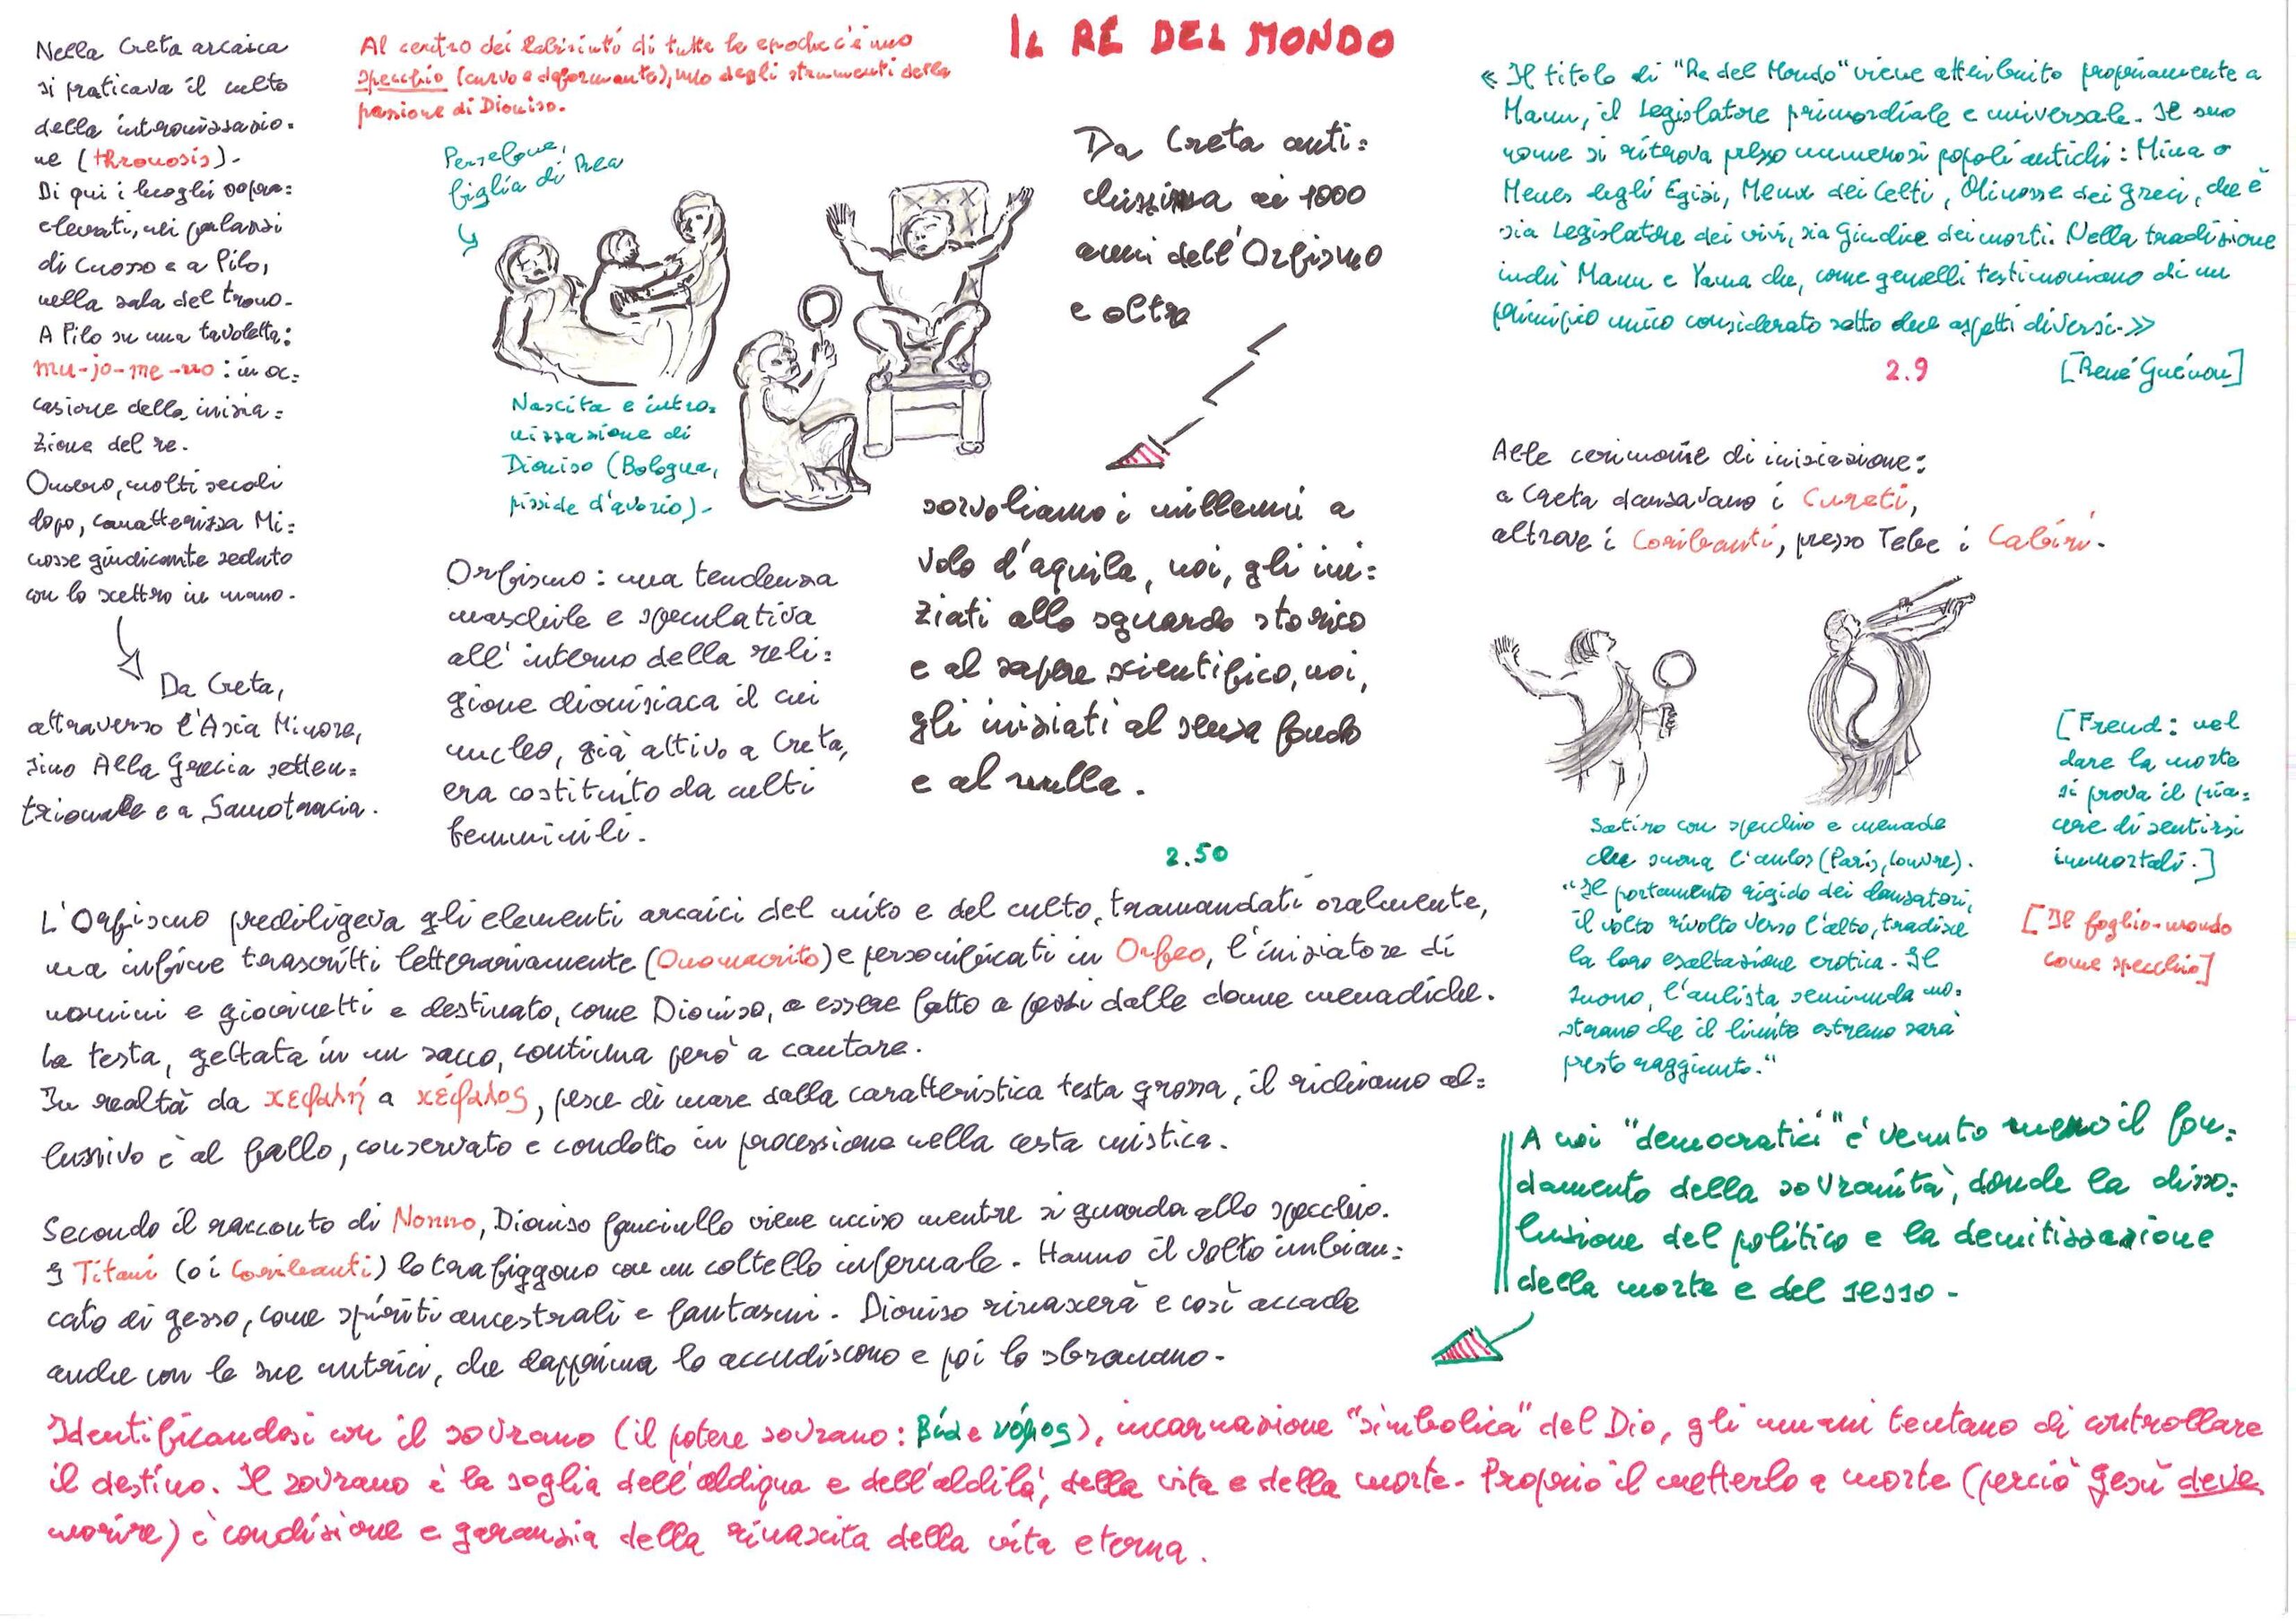 IL RE DEL MONDO
Nella Creta arcaica
si praticava il culto
della intronizzazio=
ne (thronosis).
Di qui i luoghi sopra=
elevati, nei palazzi
di Cnosso e a Pilo,
nella sala del trono.
A Pilo su una tavoletta:
mu-jo-me-no: in oc=
casione della inizia=
zione del re.
Omero, molti secoli
dopo, caratterizza Mi=
nosse giudicante seduto
con lo scettro in mano.
Da Creta,
attraverso l'Asia Minore,
sino Alla Grecia setten=
trionale e a Samotracia.
Al centro dei labirinti di tutte le epoche c'è uno
specchio (curvo e deformante), uno degli strumenti della
passione di Dioniso.
Persefone,
figlia di Rea
Nascita e intro=
nizzazione di
Dioniso (Bologna,
pisside d'avorio).
Orfismo: una tendenza
maschile e speculativa
all'interno della reli=
gione dionisiaca il cui
nucleo, già attivo a Creta,
era costituito da culti
femminili.
Da Creta anti=
chissima ai 1000
anni dell'Orfismo
e oltre
sorvoliamo i millenni a
volo d'aquila, noi, gli ini=
ziati allo sguardo storico
e al sapere scientifico, noi,
gli iniziati al senza fondo
e al nulla.
2.50
«Il titolo di "Re del Mondo" viene attribuito propriamente a
Manu, il Legislatore primordiale e universale. Il suo
nome si ritrova presso numerosi popoli antichi: Mina o
Menes degli Egizi, Menw dei Celti, Minosse dei greci, che è
sia Legislatore dei vivi, sia Giudice dei morti. Nella tradizione
indù Manu e Yama che, come gemelli testimoniano di un
principio unico considerato sotto due aspetti diversi.»
2.9 [René Guénon]
Alle cerimonie di iniziazione:
a Creta danzavano i Cureti,
altrove i Coribanti, presso Tebe i Cabiri.
Satiro con specchio e menade
che suona l'aulos (Paris, Louvre).
"Il portamento rigido dei danzatori,
il volto rivolto verso l'alto, tradisce
la loro esaltazione erotica. Il
suono, l'aulista seminuda mo=
strano che il limite estremo sarà
presto raggiunto."
[Freud: nel
dare la morte
si prova il pia=
cere di sentirsi
immortali.]
[Il foglio-mondo
come specchio]
L'Orfismo prediligeva gli elementi arcaici del mito e del culto, tramandati oralmente,
ma infine trascritti letterariamente (Onomacrito) e personificati in Orfeo, l'iniziatore di
uomini e giovinetti e destinato, come Dioniso, a essere fatto a pezzi dalle donne menadiche.
La testa, gettata in un sacco, continua però a cantare.
In realtà da κεφαλή a κέφαλος, pesce di mare dalla caratteristica testa grossa, il richiamo al=
lusivo è al fallo, conservato e condotto in processione nella cesta mistica.
Secondo il racconto di Nonno, Dioniso fanciullo viene ucciso mentre si guarda allo specchio.
I Titani (o i Coribanti) lo trafiggono con un coltello infernale. Hanno il volto imbian=
cato di gesso, come spiriti ancestrali e fantasmi. Dioniso rinascerà e così accade
anche con le sue nutrici, che dapprima lo accudiscono e poi lo sbranano.
A noi "democratici" è venuto meno il fon=
damento della sovranità, donde la disso=
luzione del politico e la demitizzazione
della morte e del sesso.
Identificandosi con il sovrano (il potere sovrano: Βία e νόμος), incarnazione "simbolica" del Dio, gli umani tentano di controllare
il destino. Il sovrano è la soglia dell'aldiqua e dell'aldilà, della vita e della morte. Proprio il metterlo a morte (perciò Gesù deve
morire) è condizione e garanzia della rinascita della vita eterna.